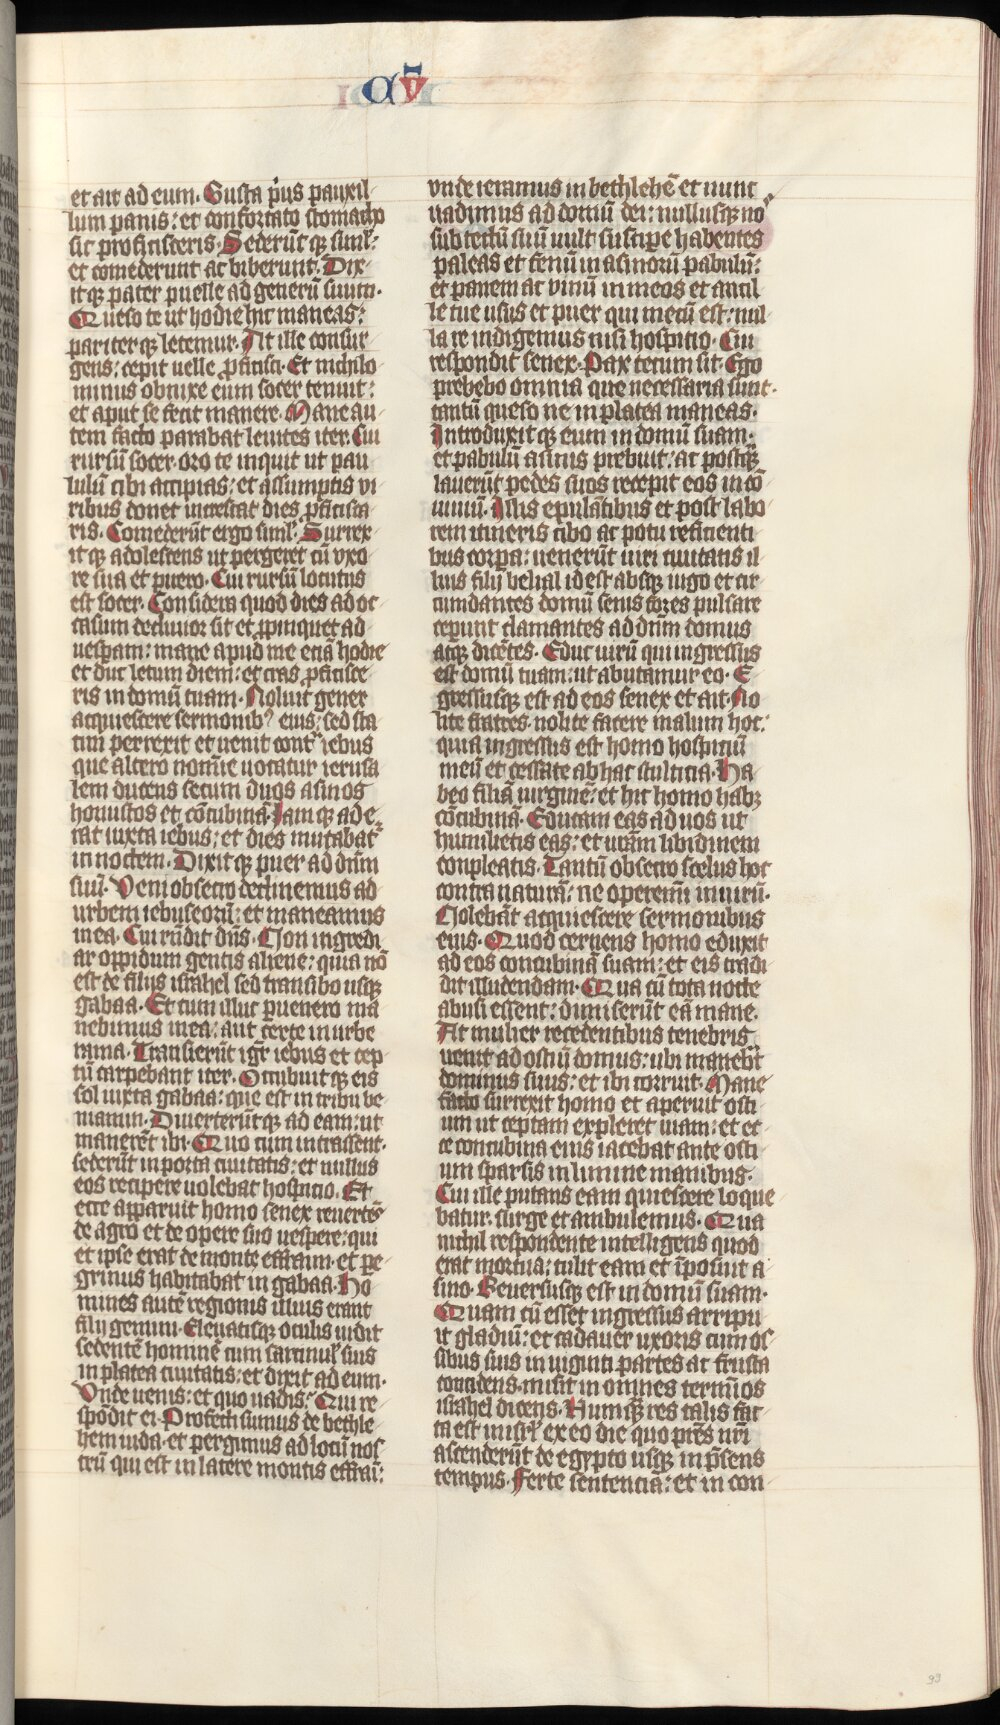 CU̅
et ait ad eum. Gusta p̓us pauxil
lum panis: et confortato stomacho
sic proficisceris. Sederūt q̨ simł:
et comederunt ac biberunt. Dix
it q̨ pater puelle ad generū suum.
Queso te ut hodie hic maneas:
pariter q̨ letemur. At ille consur
gens: cepit uelle ꝓficisci. Et nichilo
minus obnixe eum socer tenuit:
et aput se fecit manere. Mane au
tem facto parabat leuites iter. Cui
rursū socer. oro te inquit ut pau
lulū cibi accipias: et assumptis vi
ribus donec increscat dies ꝓficisca
ris. Comederūt ergo simł. Surrex
it q̨ adolescens ut pergeret cū vxo
re sua et puero. Cui rursū locutus
est socer. Considera quod dies ad oc
casum decliuior sit et ꝓpinquet ad
uesꝑam: mane apud me etiā hodie
et duc letum diem: et cras ꝓficisce
ris in domū tuam. Noluit gener
acquiescere sermonib⁹ eius: sed sta
tim perrexit et uenit contᵃ iebus
que altero noīe uocatur ierusa
lem ducens secum duos asinos
honustos et cōcubinā. Iam q̨ ade
rat iuxta iebus: et dies mutabat᷑
in noctem. Dixit q̨ puer ad dn̄m
suū. Veni obsecro declinemus ad
urbem iebuseorū: et maneamus
in ea. Cui rn̄dit dn̄s. Non ingredi
ar oppidum gentis aliene: quia nō
est de filiis israhel sed transibo usq̨
gabaa. Et cum illuc ꝑuenero ma
nebimus in ea: aut certe in urbe
rama. Transierūt igr̄ iebus et cep
tū carpebant iter. Occubuit q̨ eis
sol iuxta gabaa: que est in tribu be
niamin. Diuerterūt q̨ ad eam: ut
manerēt ibi. Quo cum intrassent.
sederūt in porta ciuitatis: et nullus
eos recipere uolebat hospicio. Et
ecce apparuit homo senex reuertēs
de agro et de opere suo uespere: qui
et ipse erat de monte effraim. et pe
grinus habitabat in gabaa. Ho
mines autē regionis illius erant
filij gemini. Eleuatisq̨ oculis uidit
sedentē hominē cum sarcinuł suis
in platea ciuitatis: et dixit ad eum.
Vnde uenis: et quo uadis? Qui re
spōdit ei. Profecti sumus de bethle
hem iuda. et pergimus ad locū nos
trū qui est in latere montis effraī:
vnde ieramus in bethlehē et nunc
uadimus ad domū dei: nullusq̨ nos
sub tectū suū uult suscipe habentes
paleas et fenū in asinorū pabulū:
et panem ac vinū in meos et ancil
le tue usus et puer qui mecū est: nul
la re indigemus nisi hospicio. Cui
respondit senex. Pax tecum sit. Ego
prebebo omnia que necessaria sunt.
tantū queso ne in platea maneas.
Introduxit q̨ eum in domū suam.
et pabulū asinis prebuit. ac postq̨̄
lauerūt pedes suos recepit eos in cō
uiuiū. Illis epulātibus et post labo
rem itineris cibo ac potu reficienti
bus corꝑa: uenerūt uiri ciuitatis il
lius filij belial id est absq̨ iugo et cir
cumdantes domū senis fores pulsare
ceperunt clamantes ad dn̄m domus
atq̨ dicētes. Educ uirū qui ingressus
est domū tuam: ut abutamur eo. E
gressusq̨ est ad eos senex et ait. No
lite fratres. nolite facere malum hoc:
quia ingressus est homo hospiciū
meū et cessate ab hac stulticia. Ha
beo filiā virginē: et hic homo habꝫ
cōcubinā. Educam eas ad uos ut
humilietis eas: et urām libidinem
conpleatis. Tantū obsecro scelus hoc
contra naturā: ne operemī in uirū.
Nolebāt acquiescere sermonibus
eius. Quod cernens homo eduxit
ad eos concubinā suam: et eis tradi
dit illudendam. Qua cū tota nocte
abusi essent: dimiserūt eā mane.
At mulier recedentibus tenebris
uenit ad ostiū domus: ubi manebat
dominus suus: et ibi corruit. Mane
facto surrexit homo et aperuit osti
um ut ceptam expleret uiam: et ec
ce concubina eius iacebat ante osti
um sparsis in lumine manibus.
Cui ille putans eam quiescere loque
batur. surge et ambulemus. Qua
nichil respondente intelligens quod
erat mortua: tulit eam et īposuit a
sino. Reuersusq̨ est in domū suam.
Quam cū esset ingressus arripu
it gladiū: et cadauer uxoris cum os
sibus suis in uiginti partes ac frusta
concidens. misit in omnes terminos
israhel dicens. Numq̨̄ res talis fac
ta est in isrł ex eo die quo pr̄es nr̄i
ascenderūt de egypto usq̨ in p̄sens
tempus. Ferte sentenciā: et in con
99